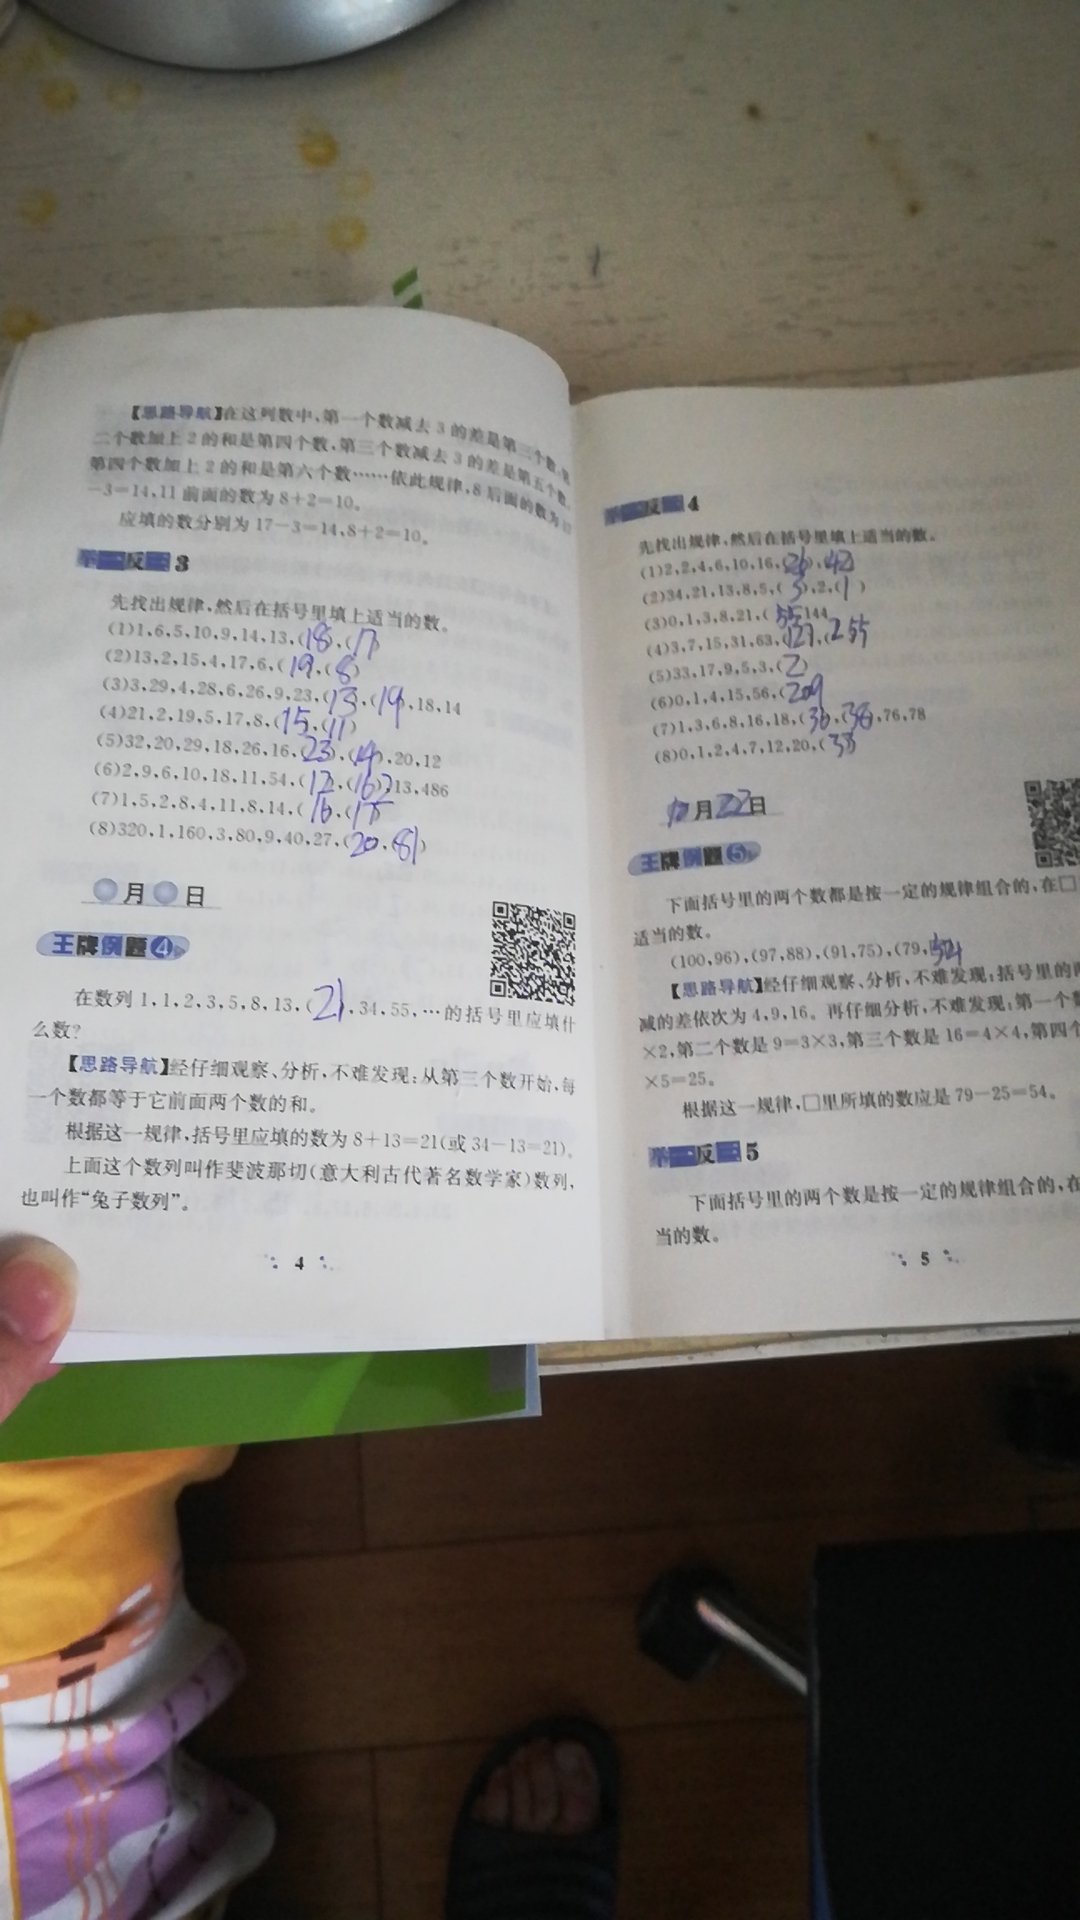 【思路导航】在这列数中,第一个数减去3的差是第三个数,第
二个数加上2的和是第四个数,第三个数减去3的差是第五个数,
第四个数加上2的和是第六个数……依此规律,8后面的数为17
-3=14,11前面的数为8+2=10。
应填的数分别为17-3=14,8+2=10。
举一反三3
先找出规律,然后在括号里填上适当的数。
(1)1,6,5,10,9,14,13,(18),(17)
(2)13,2,15,4,17,6,(19),(8)
(3)3,29,4,28,6,26,9,23,(13),(19),18,14
(4)21,2,19,5,17,8,(15),(11)
(5)32,20,29,18,26,16,(23),(14),20,12
(6)2,9,6,10,18,11,54,(12),(162),13,486
(7)1,5,2,8,4,11,8,14,(16),(17)
(8)320,1,160,3,80,9,40,27,(20),(81)
月 日
王牌例题4
在数列1,1,2,3,5,8,13,(21),34,55,…的括号里应填什
么数?
【思路导航】经仔细观察、分析,不难发现:从第三个数开始,每
一个数都等于它前面两个数的和。
根据这一规律,括号里应填的数为8+13=21(或34-13=21)。
上面这个数列叫作斐波那切(意大利古代著名数学家)数列,
也叫作“兔子数列”。
4
举一反三4
先找出规律,然后在括号里填上适当的数。
(1)2,2,4,6,10,16,(26),(42)
(2)34,21,13,8,5,(3),2,(1)
(3)0,1,3,8,21,(55),144
(4)3,7,15,31,63,(127),(255)
(5)33,17,9,5,3,(2)
(6)0,1,4,15,56,(209)
(7)1,3,6,8,16,18,(36),(38),76,78
(8)0,1,2,4,7,12,20,(33)
月22日
王牌例题5
下面括号里的两个数都是按一定的规律组合的,在□
适当的数。
(100,96),(97,88),(91,75),(79,54
【思路导航】经仔细观察、分析,不难发现:括号里的两
减的差依次为4,9,16。再仔细分析,不难发现:第一个数
×2,第二个数是9=3×3,第三个数是16=4×4,第四个
×5=25。
根据这一规律,□里所填的数应是79-25=54。
举一反三5
下面括号里的两个数是按一定的规律组合的,在
当的数。
5